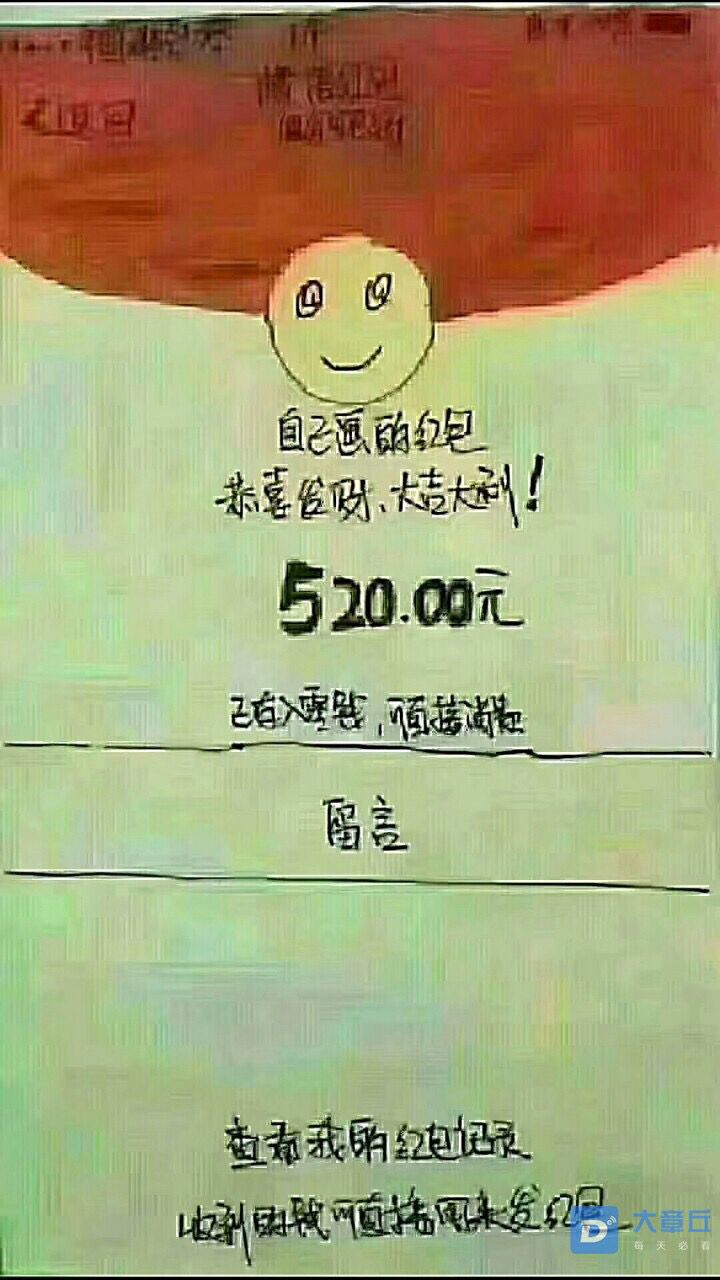 微信红包
返回
微信安全支付
自己画的红包
恭喜发财、大吉大利！
520.00元
已存入零钱，可直接消费
留言
查看我的红包记录
收到的钱可直接用来发红包
大章丘
每天必看